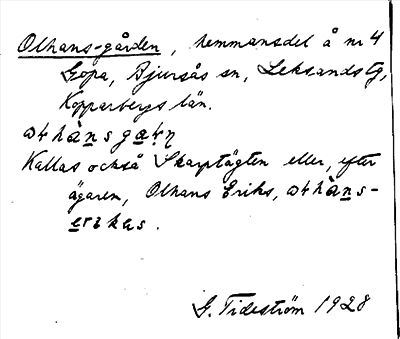 Olhans-gården, hemmansdel å nr 4
Gopa, Bjursås sn, Leksands tg,
Kopparbergs län.
Kallas också Skarptägten eller, efter
ägaren, Olhans Eriks,
G. Tideström 1928